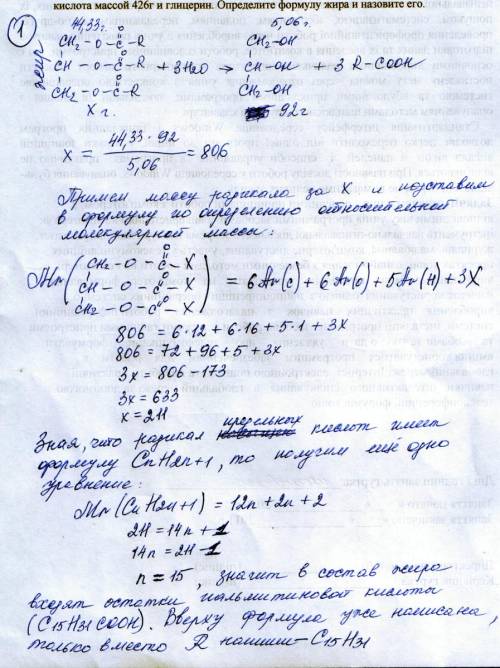 кислота массой 426г и глицерин. Определите формулу жира и назовите его.
1
44,33г. 5,06г.
жир
CH2-O-C-R CH2-OH
O
CH-O-C-R + 3H2O → CH-OH + 3 R-COOH
O
CH2-O-C-R CH2-OH
O
X г. 92г
X = 44,33·92 / 5,06 = 806
Примем массу радикала за X и подставим
в формулу по определению относительной
молекулярной массы:
Mr(CH2-O-C-X
O
CH-O-C-X
O
CH2-O-C-X) = 6Ar(C) + 6Ar(O) + 5Ar(H) + 3X
O
806 = 6·12 + 6·16 + 5·1 + 3x
806 = 72 + 96 + 5 + 3x
3x = 806 - 173
3x = 633
x = 211
Зная, что радикал предельных кислот имеет
формулу CnH2n+1, то получим ещё одно
уравнение:
Mr(CnH2n+1) = 12n + 2n + 2
211 = 14n + 1
14n = 211 - 1
n = 15, значит в состав жира
входят остатки пальмитиновой кислоты
(C15H31COOH). Вверху формула уже написана,
только вместо R напиши - C15H31